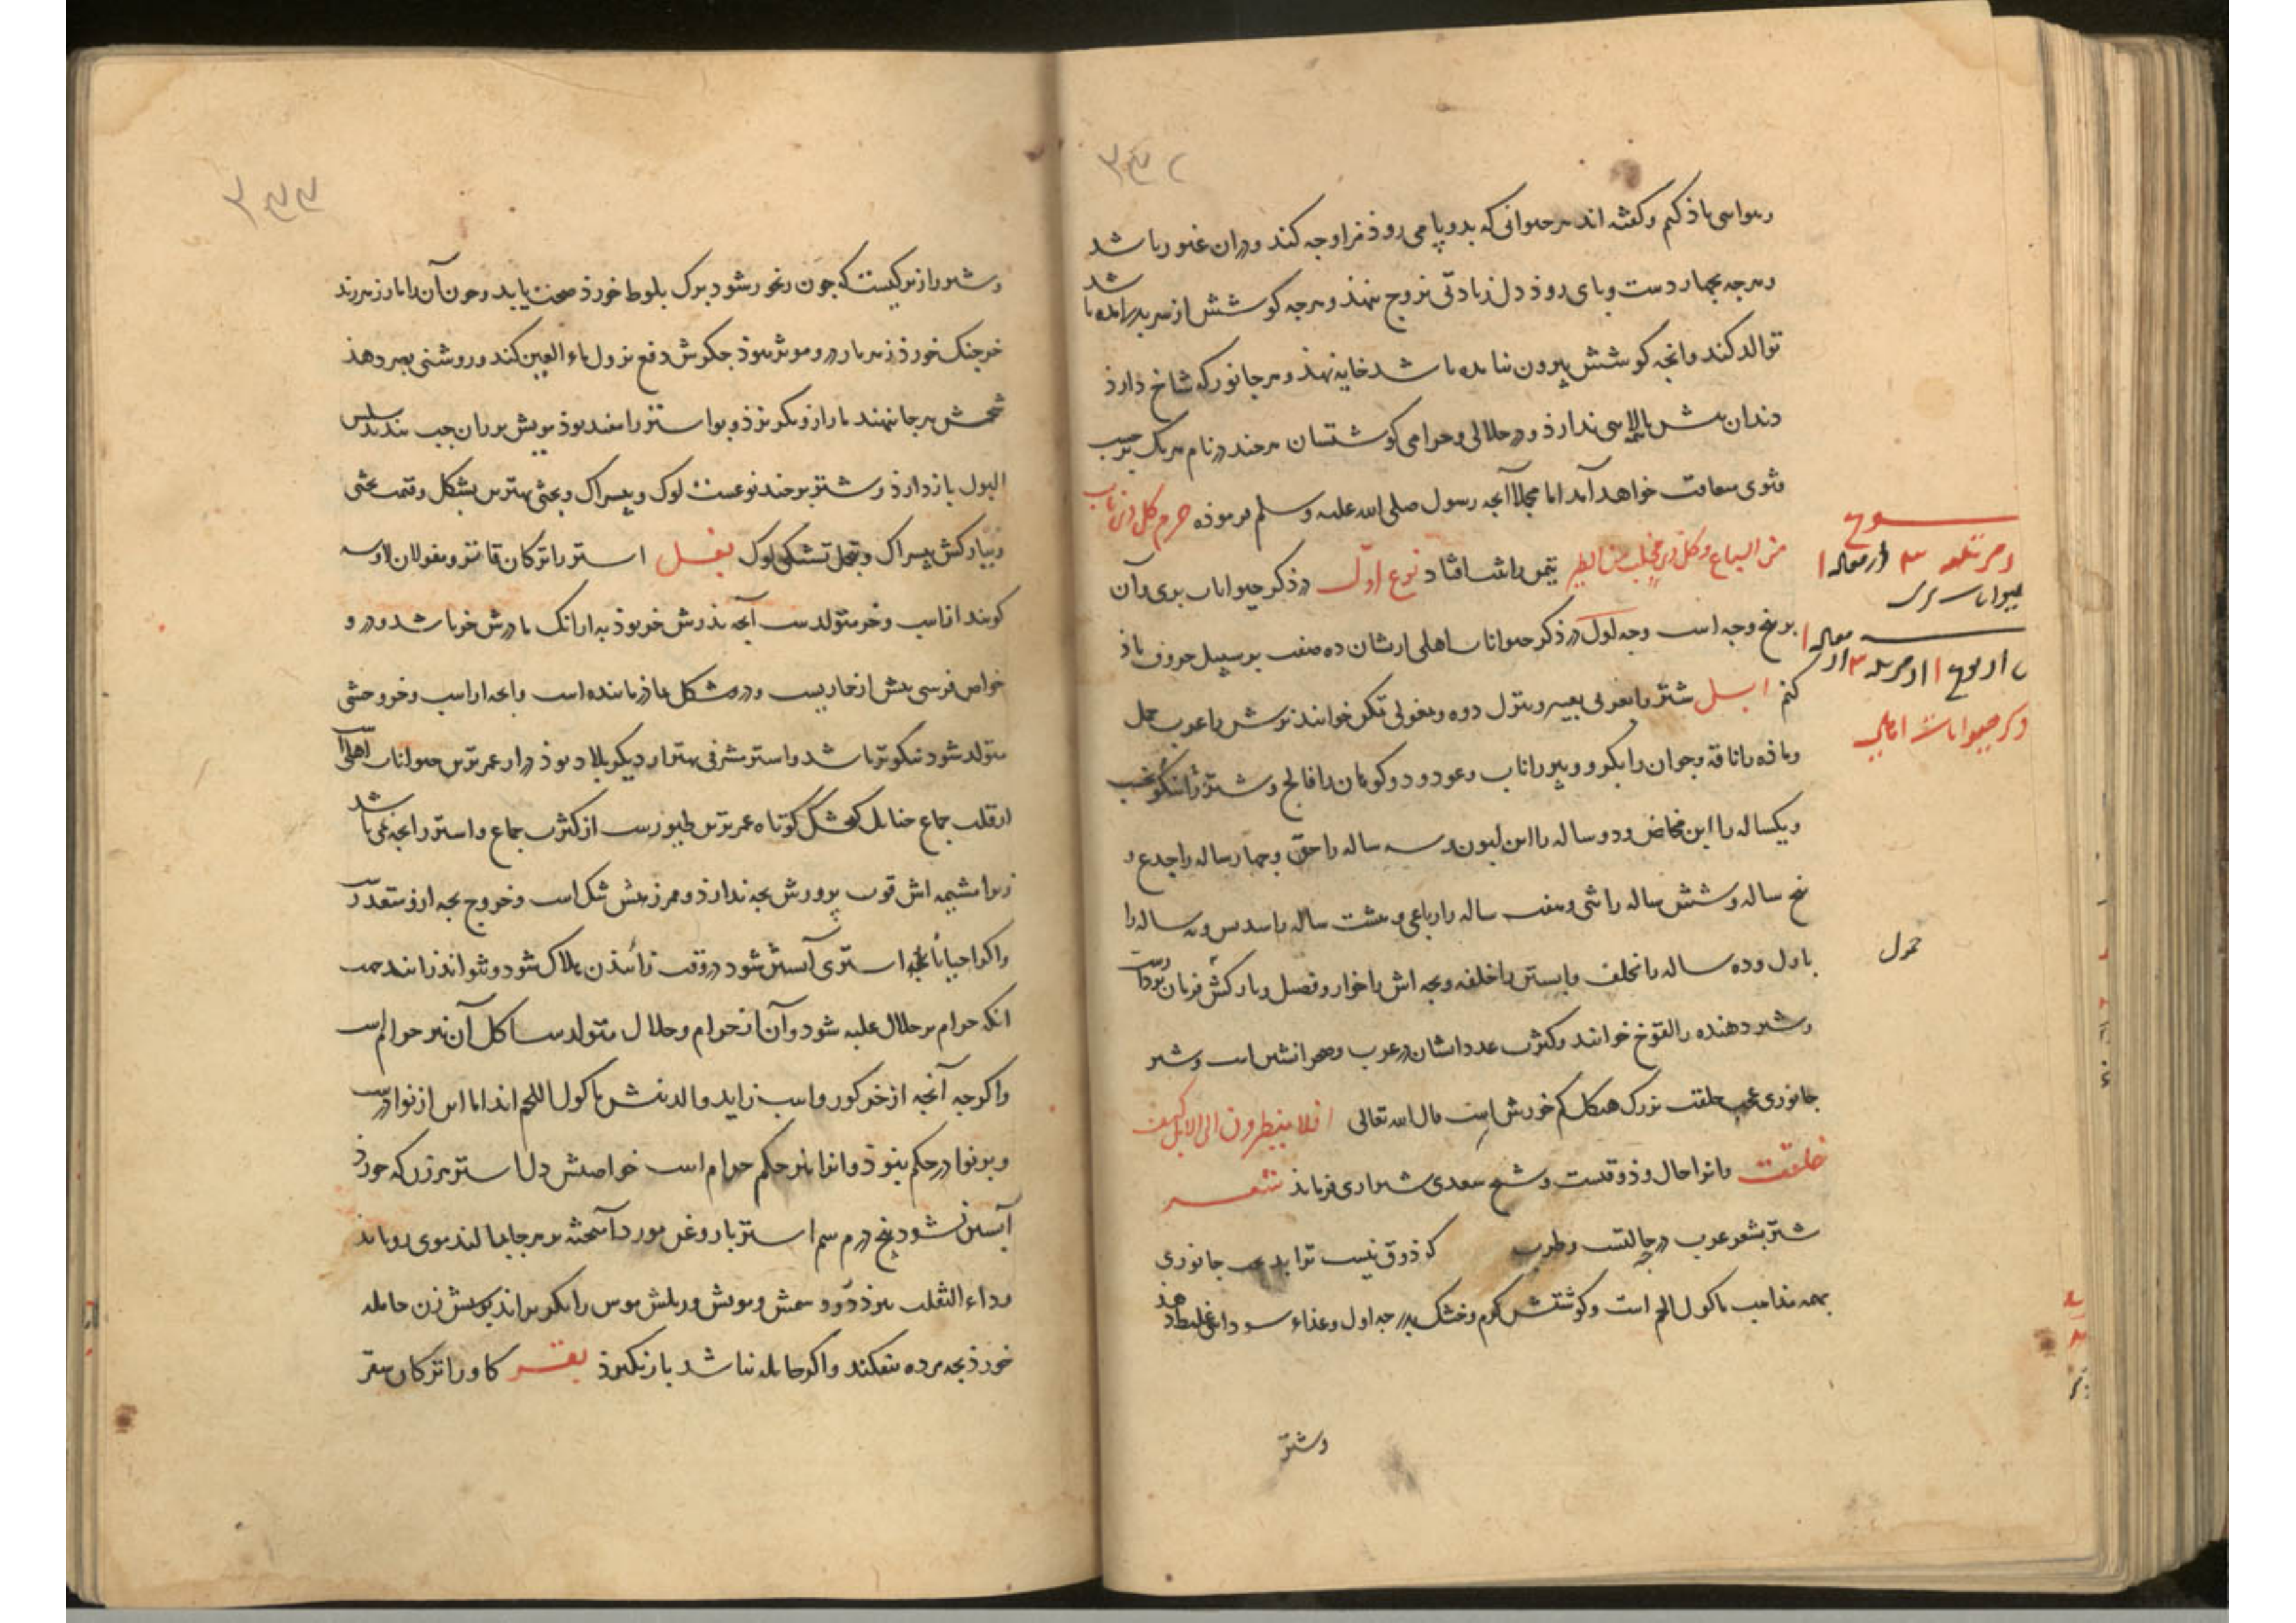 و گفته اند هر حیوانی که بدو پا می رود فرا وجه کند و در ان غیور باشد
و هرچه بچهار دست و پای روذ دل بزیادتی نزوج ننهذ و هرچه کوشش از سر بدر آمده باشد
توالد کند و انچه کوشش بیرون نیامده باشد خایه نهذ و هر جانور که شاخ دارذ
دندان پیش بالایی ندارذ و در حلالی و حرامی کوشتشان هر چند در نام هر یک بر حسب
فتوی خواهد آمد اما مجملا آنچه رسول صلی الله علیه و سلم فرموذه حرم کل ذی ناب
من السباع و کل ذی مخلب من الطیر نوع اول در ذکر حیوانات بری و آن
بر پنج وجه است وجه اول در ذکر حیوانات اهلی ازیشان ده صنف بر سبیل حروف یاذ
کنم ابل شتر را بعربی بعیر و بترکی دوه و بمغولی تکن خوانند نرش را عرب جمل
و ماذه را ناقه و جوان را بکر و پیر را ناب و عود و دو کوهان را فالج و شتر
و یکساله را ابن مخاض و دو ساله را ابن لبون و سه ساله را حق و چهار ساله را جذع و
پنج ساله و شش ساله را ثنی و هفت ساله را رباعی و هشت ساله را سدس و نه ساله را
بازل و ده ساله را مخلف و ابستن را خلفه و بچه اش را حوار و فصیل و بارکش
و شیر دهنده را لقوح خوانند و کثرت عدد ایشان در عرب و صحرا نشین است و شتر
جانوری عجب خلقت بزرک هیکل کم خورش است قال الله تعالی افلا ینظرون الی الابل کیف
خلقت و انرا حال و ذوقست و شیخ سعدی شیرازی فرماید شعر
شتر بشعر عرب در حالتست و طرب کر ذوق نیست ترا جانوری
بهمه مذاهب ماکول اللحم است و کوشتش کرم و خشک بدرجه اول و غذاء سوداوی غلیظ دهذ
وشتر
نوع
حیوانات بری
ذکر حیوانات اهلی
حمول
و شتر را زیرکیست که چون رنجور شود برک بلوط خورذ صحت یابد و چون آن را مار زهر زند
خرچنک خورذ زهر مار درو موثر نبوذ جکرش دفع نزول ماء العین کند و روشنی بصر دهذ
شحمش هر جا نهند مار ازو بکریزذ و بواسیر را مفید بوذ مویش بر ران چپ بندند سلس
البول بازدارذ و شتر بر چند نوعست لوک و بیسراک و بختی بهترین بشکل و قیمت بختی
و ببارکش بیسراک و بتحمل تشنکی لوک بغل استر را ترکان قاتر و مغولان لاوسه
کویند از اسب و خر متولد است آنچه پذرش خر بوذ به از انک مادرش خر باشد و در و
خواص فرسی بیش از خاریست و در شکل ماذر ماننده است و انچه از اسب و خر وحشی
متولد شود نیکوتر باشد و استر مشرقی بهتر از دیکر بلاد بوذ دراز عمرترین حیوانات اهلی است
از قلت جماع چنانک کنجشک کوتاه عمرترین طیورست از کثرت جماع و استر را بچه نمی باشد
زیرا مشیمه اش قوت پرورش بچه ندارذ و ممرزهش تنک است و خروج بچه ازو متعذرست
و اکر احیانا استری آبستن شود در وقت زائیذن هلاک شود و نتواند زائید جهت
انکه حرام بر حلال غلبه شود و آن از حرام و حلال متولد است اکل آن نیز حرام است
و اکرچه آنچه از خر کور و اسب زاید والدینش ماکول اللحم اند اما این از نوادرست
و بر نوادر حکم نبوذ و انرا نیز حکم حرام است خواصش دل استر هر زن که خورذ
آبستن نشود پنج درم سم استر با روغن مورد آمیخته بر هر جا مالند موی رویاند
و داء الثعلب ببرذ دود سمش و مویش و سرکینش موش را بکریزاند زن حامله
خورذ بچه مرده بیفکند و اکر حامله نباشد بار نکیرذ بقر کاو را ترکان سقر